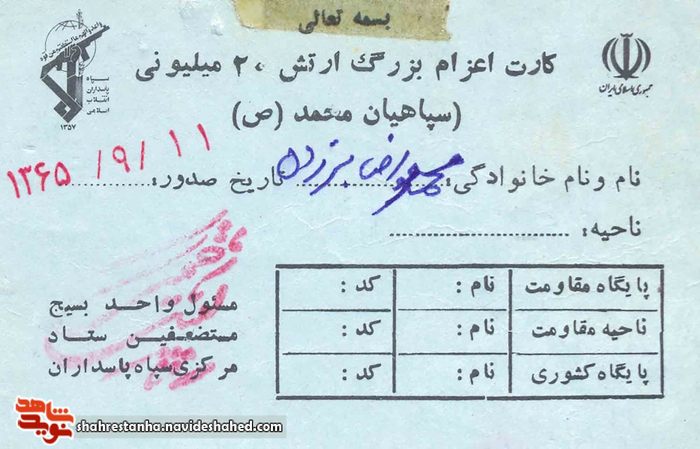 بسمه تعالی
کارت اعزام بزرگ ارتش ۲۰ میلیونی
(سپاهیان محمد (ص)
جمهوری اسلامی ایران
سپاه
پاسداران
انقلاب
اسلامی
۱۳۵۷
نام و نام خانوادگی: تاریخ صدور: ۱۳۶۵/۹/۱۱
ناحیه:
پایگاه مقاومت نام: کد:
ناحیه مقاومت نام: کد:
پایگاه کشوری نام: کد:
مسئول واحد بسیج
مستضعفین ستاد
مرکزی سپاه پاسداران
نوید شاهد
shahrestanha.navideshahed.com